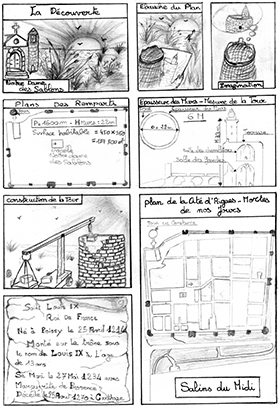 La Découverte
Notre Dame
des Sablons
Ebauche du Plan
Imagination
Plans Des Remparts
P = 1600m
Surface habitable = 450 x 360
Notre dame
des Sablons
Epaisseur des Murs - Mesure de la Tour
6 M
Salle des Gardes
Construction de la Tour
plan de la Cité d'Aigues-Mortes
de nos jours
Saint Louis IX
Roi De France
Né à Poissy le 25 Avril 1214
Monté sur le trône sous
le nom de Louis IX à l'age
de 12 ans
Se Marie le 27 Mai 1234 avec
Marguerite de Provence
Décédé le 25 Aout 1270 à Carthage
Salins du Midi